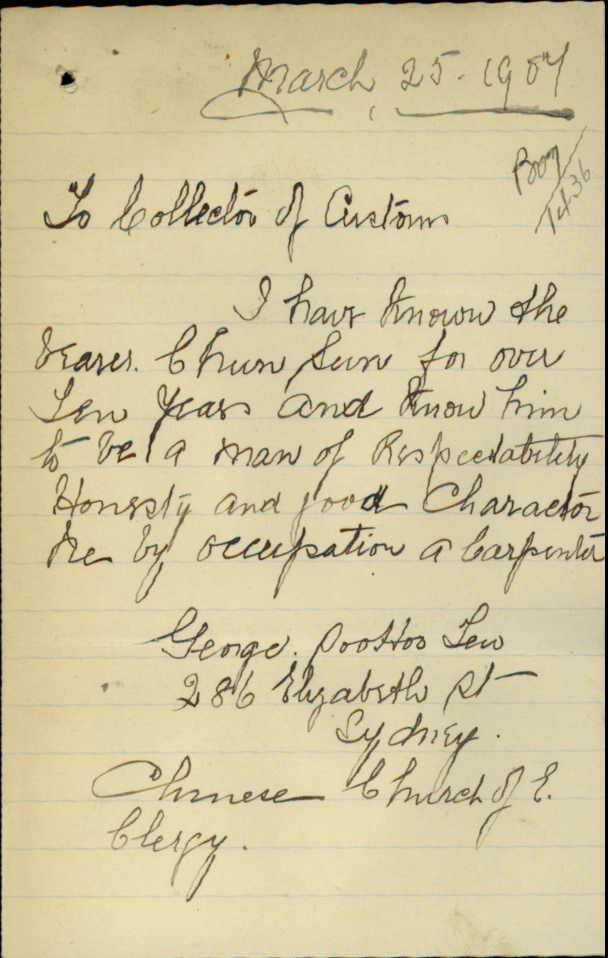 March 25. 1907
To Collector of Customs
I have known the
bearer. Chun Sun for over
Ten years and know him
to be a man of Respectability
Honesty and good Character
He by occupation a Carpenter
George. Soo Hoo Ten
286 Elizabeth St
Sydney.
Chinese Church of E.
Clergy.